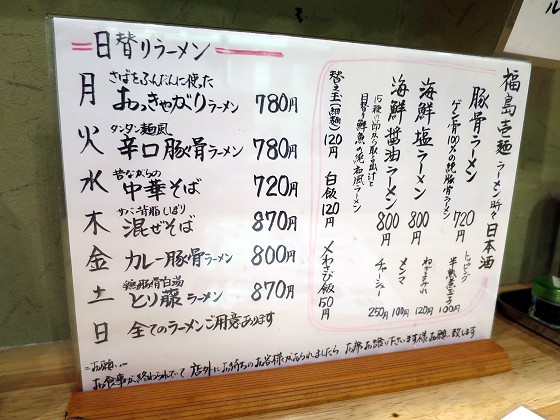 =日替りラーメン=
月 さばをふんだんに使った
おっきゃがりラーメン 780円
火 タンタン麺風
辛口豚骨ラーメン 780円
水 昔ながらの
中華そば 720円
木 サバ背脂しぼり
混ぜそば 870円
金 カレー豚骨ラーメン 800円
土 鶏豚骨白湯
とり藤ラーメン 870円
日 全てのラーメンご用意あります
福島壱麺 ラーメン所々日本酒
豚骨ラーメン 720円
ゲン骨100%の純豚骨ラーメン
海鮮塩ラーメン 800円
海鮮醤油ラーメン 800円
15種の節から取る出汁と
日替り鮮魚の純和風ラーメン
替え玉(細麺)120円 白飯120円 〆わさび飯150円
トッピング
半熟煮玉子 100円
ねぎまみれ 120円
メンマ 100円
チャーシュー 250円
=お願い…
お食事が終わられていて店外にお待ちのお客様がおられましたらお席お譲りくださいます様お願い致します
ル